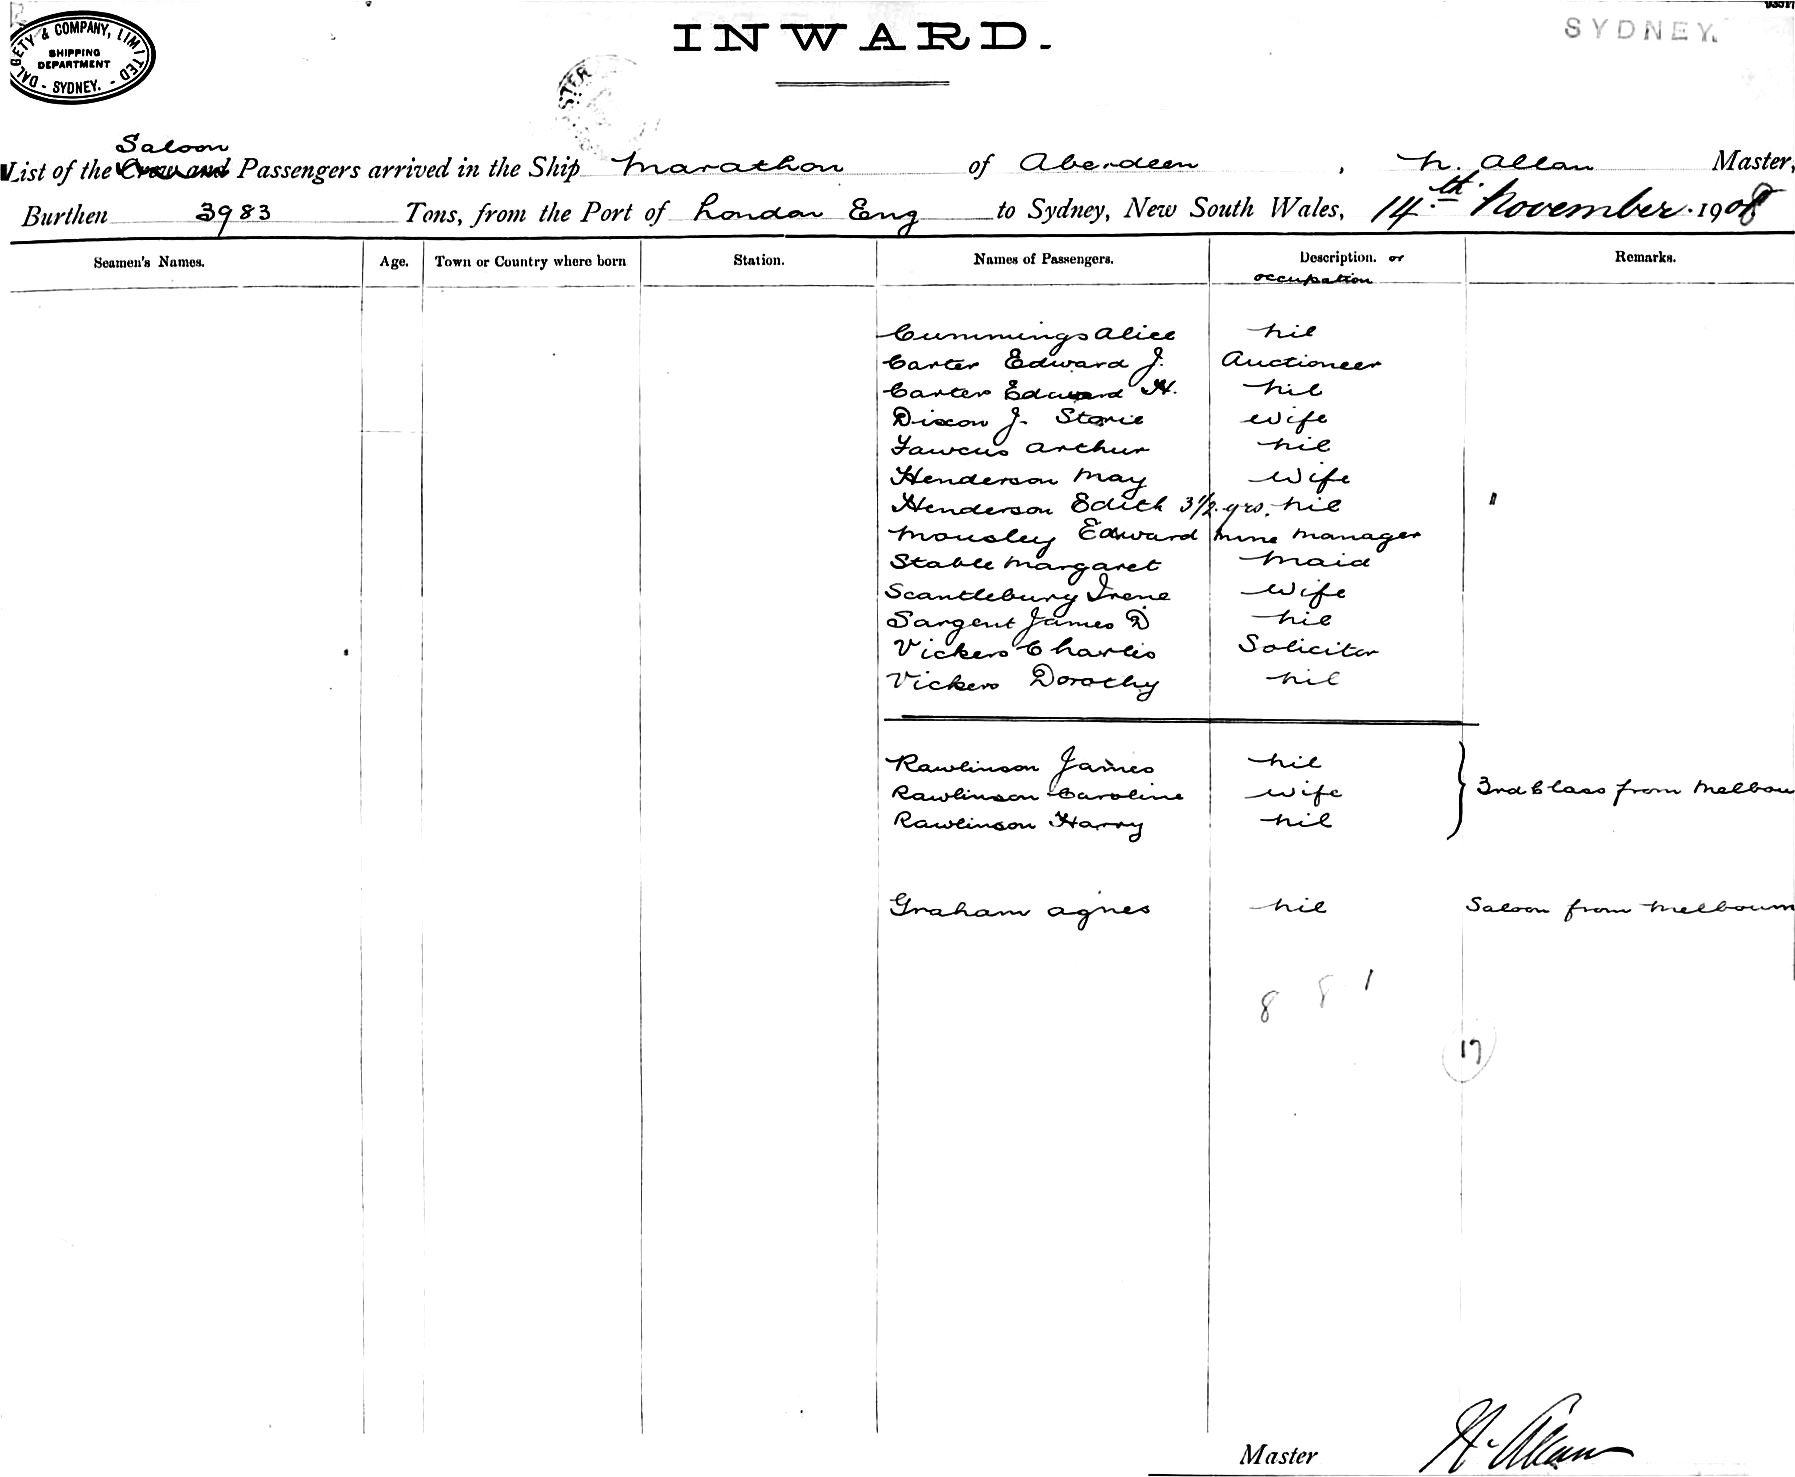 DALGETY & COMPANY, LIMITED
SHIPPING
DEPARTMENT
- SYDNEY. -
INWARD.
SYDNEY.
Saloon
List of the Crew and Passengers arrived in the Ship Marathon of Aberdeen , N. Allan Master,
Burthen 3983 Tons, from the Port of London Eng to Sydney, New South Wales, 14th November 1908
Seamen's Names. Age. Town or Country where born Station. Names of Passengers. Description. or Remarks.
occupation
Cummings Alice nil
Carter Edward J. Auctioneer
Carter Edward H. nil
Dixon J. Storie wife
Fawcus Arthur nil
Henderson May Wife
Henderson Edith 3½ yrs. nil "
Mousley Edward Mine Manager
Stable Margaret Maid
Scantlebury Irene Wife
Sargent James D nil
Vickers Charles Solicitor
Vickers Dorothy nil
Rawlinson James nil
Rawlinson Caroline wife 3rd Class from Melbou
Rawlinson Harry nil
Graham Agnes nil Saloon from Melbourn
8 8 1
17
Master N. Allan